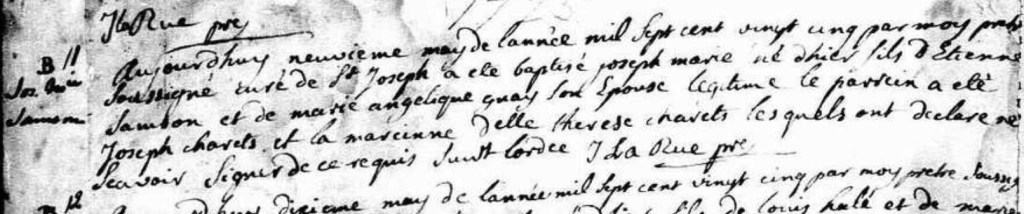 J LaRue pre
B 11
Jos. Marie
Samson
Aujourdhuy neuvieme may de lannée mil Sept cent vingt cinq par moy pretre
Soussigné curé de St Joseph a ete baptisé joseph marie né dhier fils d'Etienne
Samson et de marie angelique quay Son Epouse legitime le parrein a eté
Joseph charets et la mareinne Delle therese charets lesquels ont declare ne
Scavoir Signer de ce requis Suivt lordce J La Rue pre
B 12
dixieme may de lannée mil Sept cent vingt cinq par moy pretre Soussig
fils de louis halé et de marie